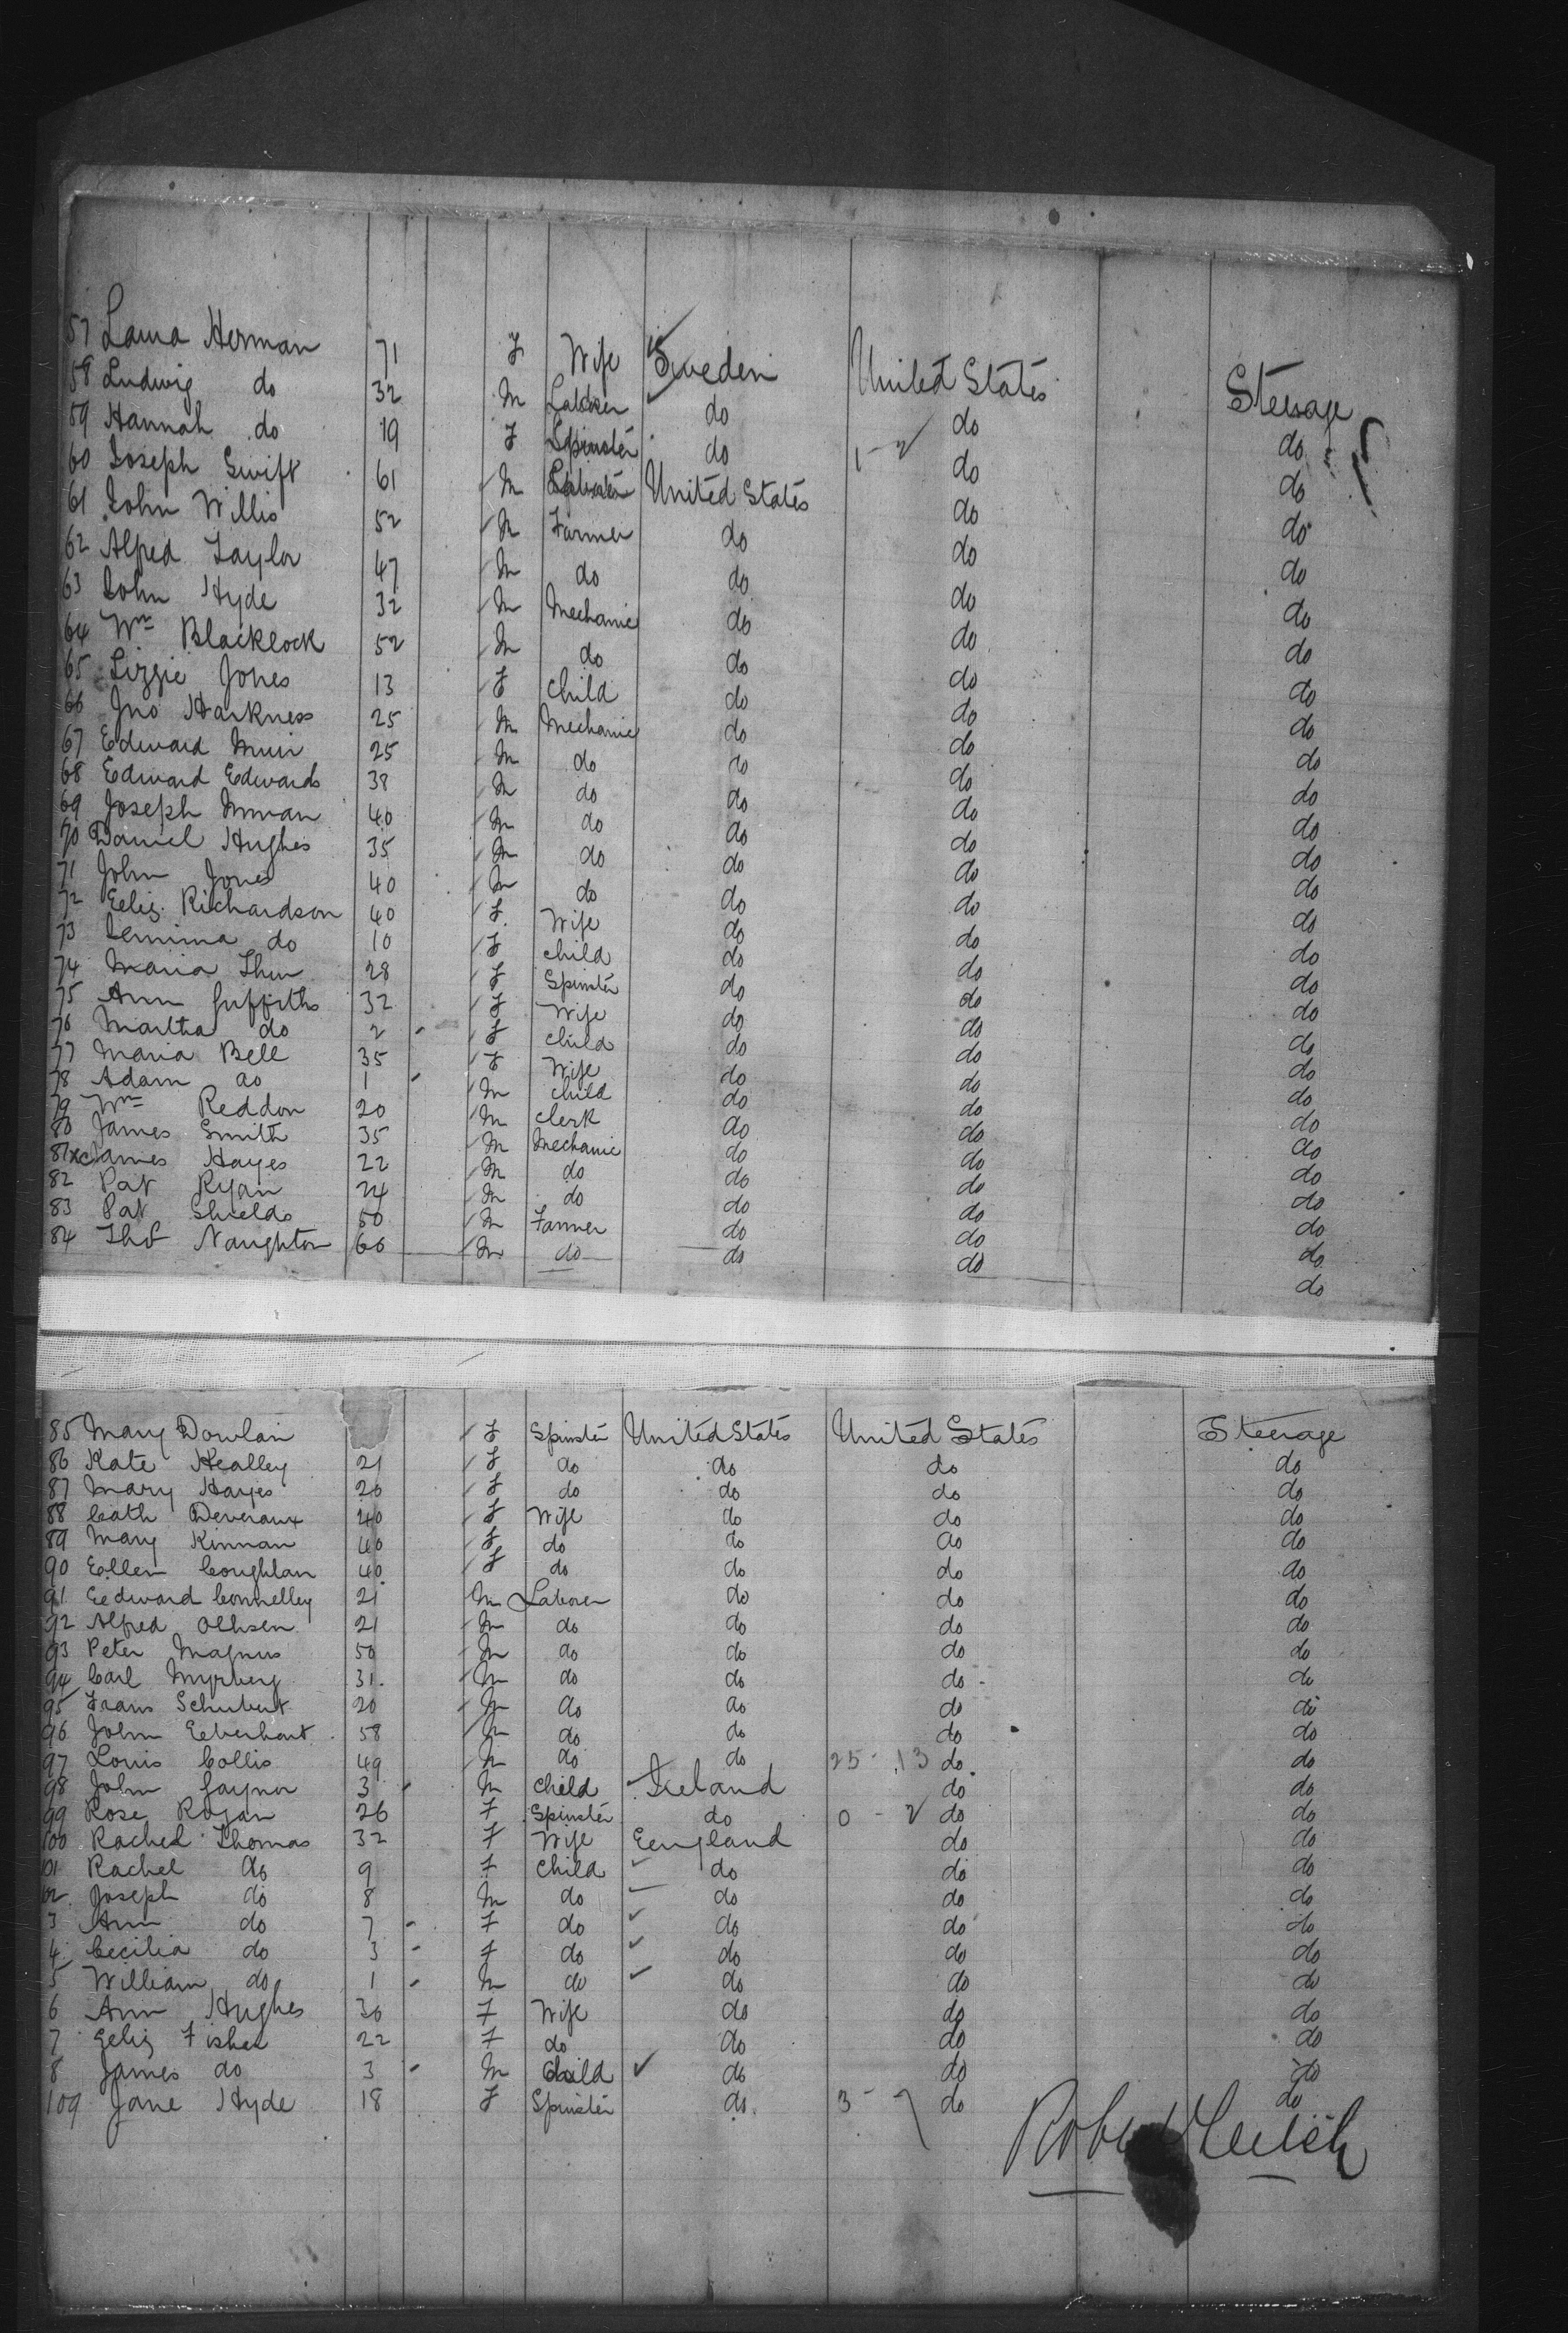 57 Laura Herman 71 F Wife Sweden United States Steerage
58 Ludwig do 32 M Laborer do do do
59 Hannah do 19 F Spinster do 1 - 2 do do
60 Joseph Swift 61 M United States do do
61 John Willis 52 M Farmer do do do
62 Alfred Taylor 47 M do do do do
63 John Hyde 32 M Mechanic do do do
64 Wm Blacklock 52 M do do do do
65 Lizzie Jones 13 F Child do do do
66 Jno Harkness 25 M Mechanic do do do
67 Edward Muir 25 M do do do do
68 Edward Edwards 38 M do do do do
69 Joseph 40 M do do do do
70 Daniel Hughes 35 M do do do do
71 John Jones 40 M do do do do
72 Eliz. Richardson 40 F. Wife do do do
73 Jemima do 10 F Child do do do
74 Maria 28 F Spinster do do do
75 Ann Griffiths 32 F Wife do do do
76 Martha do 2 - F Child do do do
77 Maria Bell 35 F Wife do do do
78 Adam do 1 - M Child do do do
79 Wm Reddon 20 M Clerk do do do
80 James Smith 35 M Mechanic do do do
81 x James Hayes 22 M do do do do
82 Pat Ryan 24 M do do do do
83 Pat Shields 50 M Farmer do do do
84 Thos Naughton 60 M do do do do
85 Mary Dowlan F Spinster United States United States Steerage
86 Kate Healley 21 F do do do do
87 Mary Hayes 20 F do do do do
88 Cath Deveraux 40 F Wife do do do
89 Mary Kinnan 40 F do do do do
90 Ellen Coughlan 40 F do do do do
91 Edward Connelley 21 M Laborer do do do
92 Alfred Olhsen 21 M do do do do
93 Peter Magnus 50 M do do do do
94 Carl Myrberg 31. M do do do do
95 Frans Schubert 20 M do do do do
96 John Eberhart 58 M do do do do
97 Louis Collis 49 M do do 25 - 13 do do
98 John Gaynor 3 - M Child Ireland do do
99 Rose Rogan 26 F Spinster do 0 - 2 do do
100 Rachel Thomas 32 F Wife England do do
101 Rachel do 9 F Child do do do
102 Joseph do 8 M do do do do
3 Ann do 7 - F do do do do
4 Cecilia do 3 - F do do do do
5 William do 1 - M do do do do
6 Ann Hughes 30 F Wife do do do
7 Eliz Fisher 22 F do do do do
8 James do 3 - M Child do do do
109 Jane Hyde 18 F Spinster do 3 - 7 do do